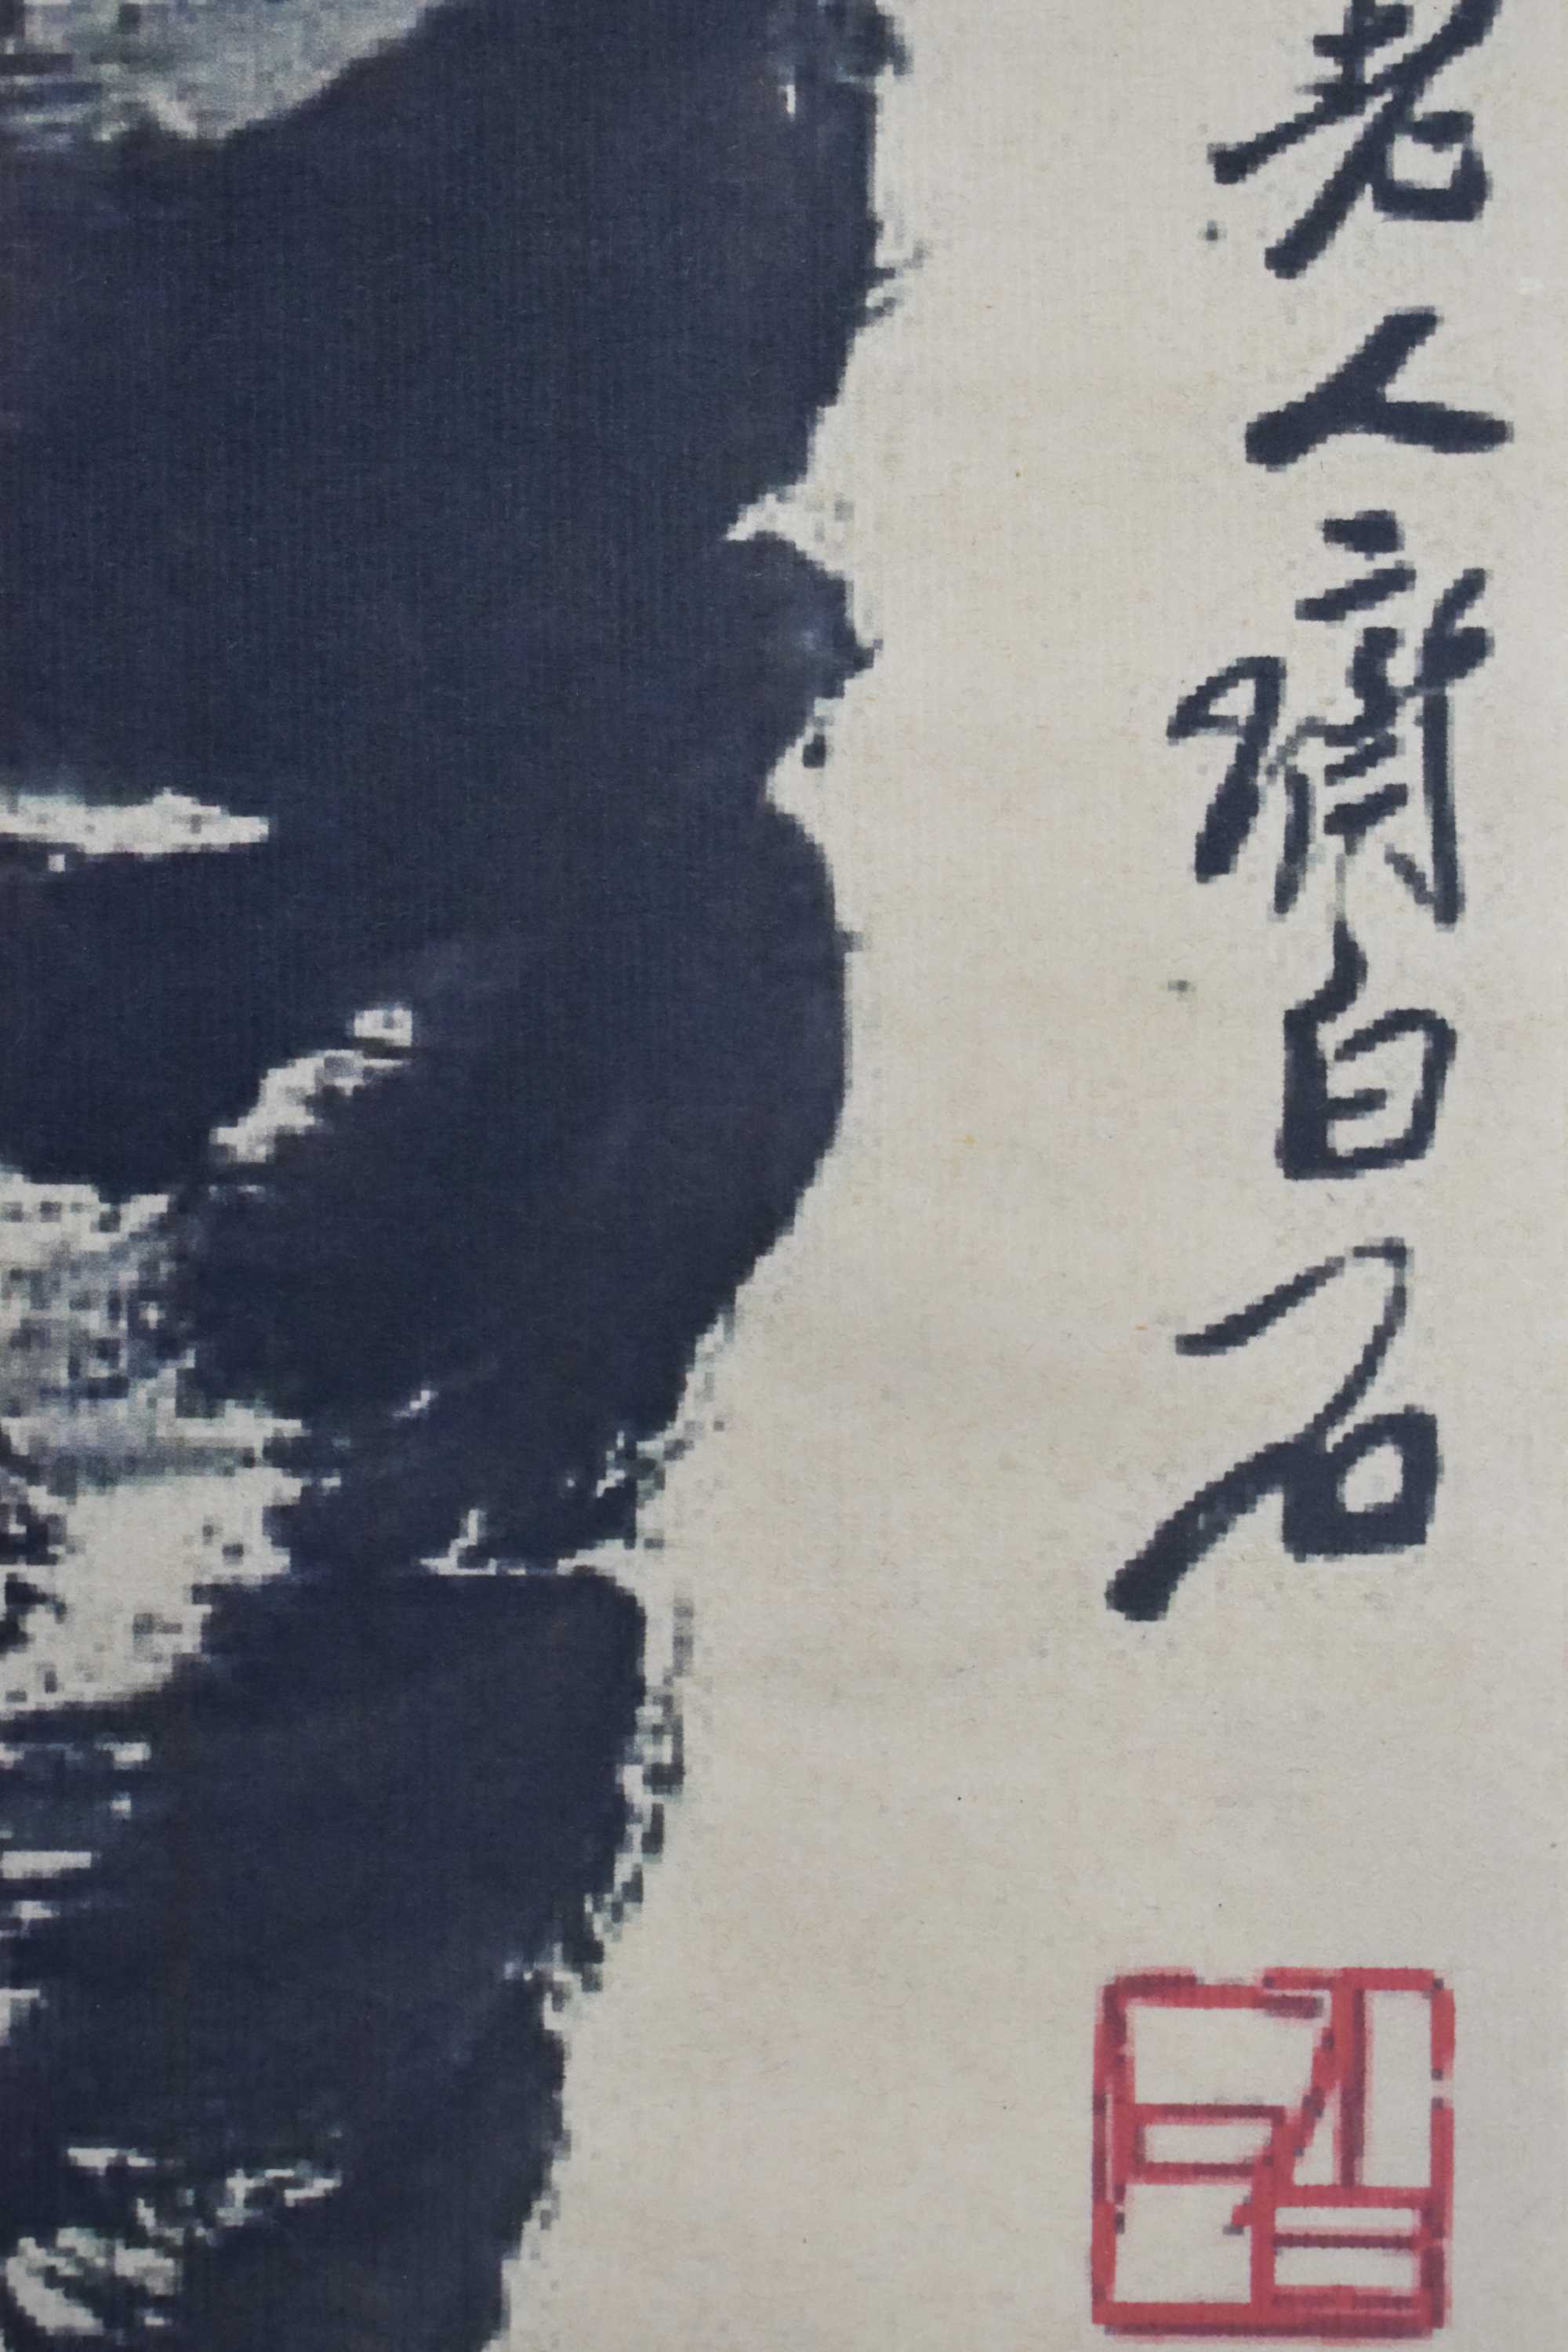 老人齊白石